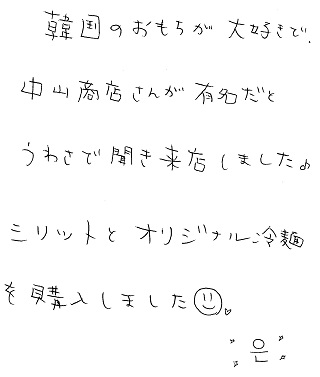 韓国のおもちが大好きで、
中山商店さんが有名だと
うわさで聞き来店しました♪
ミリットとオリジナル冷麺
を購入しました☺♡
은